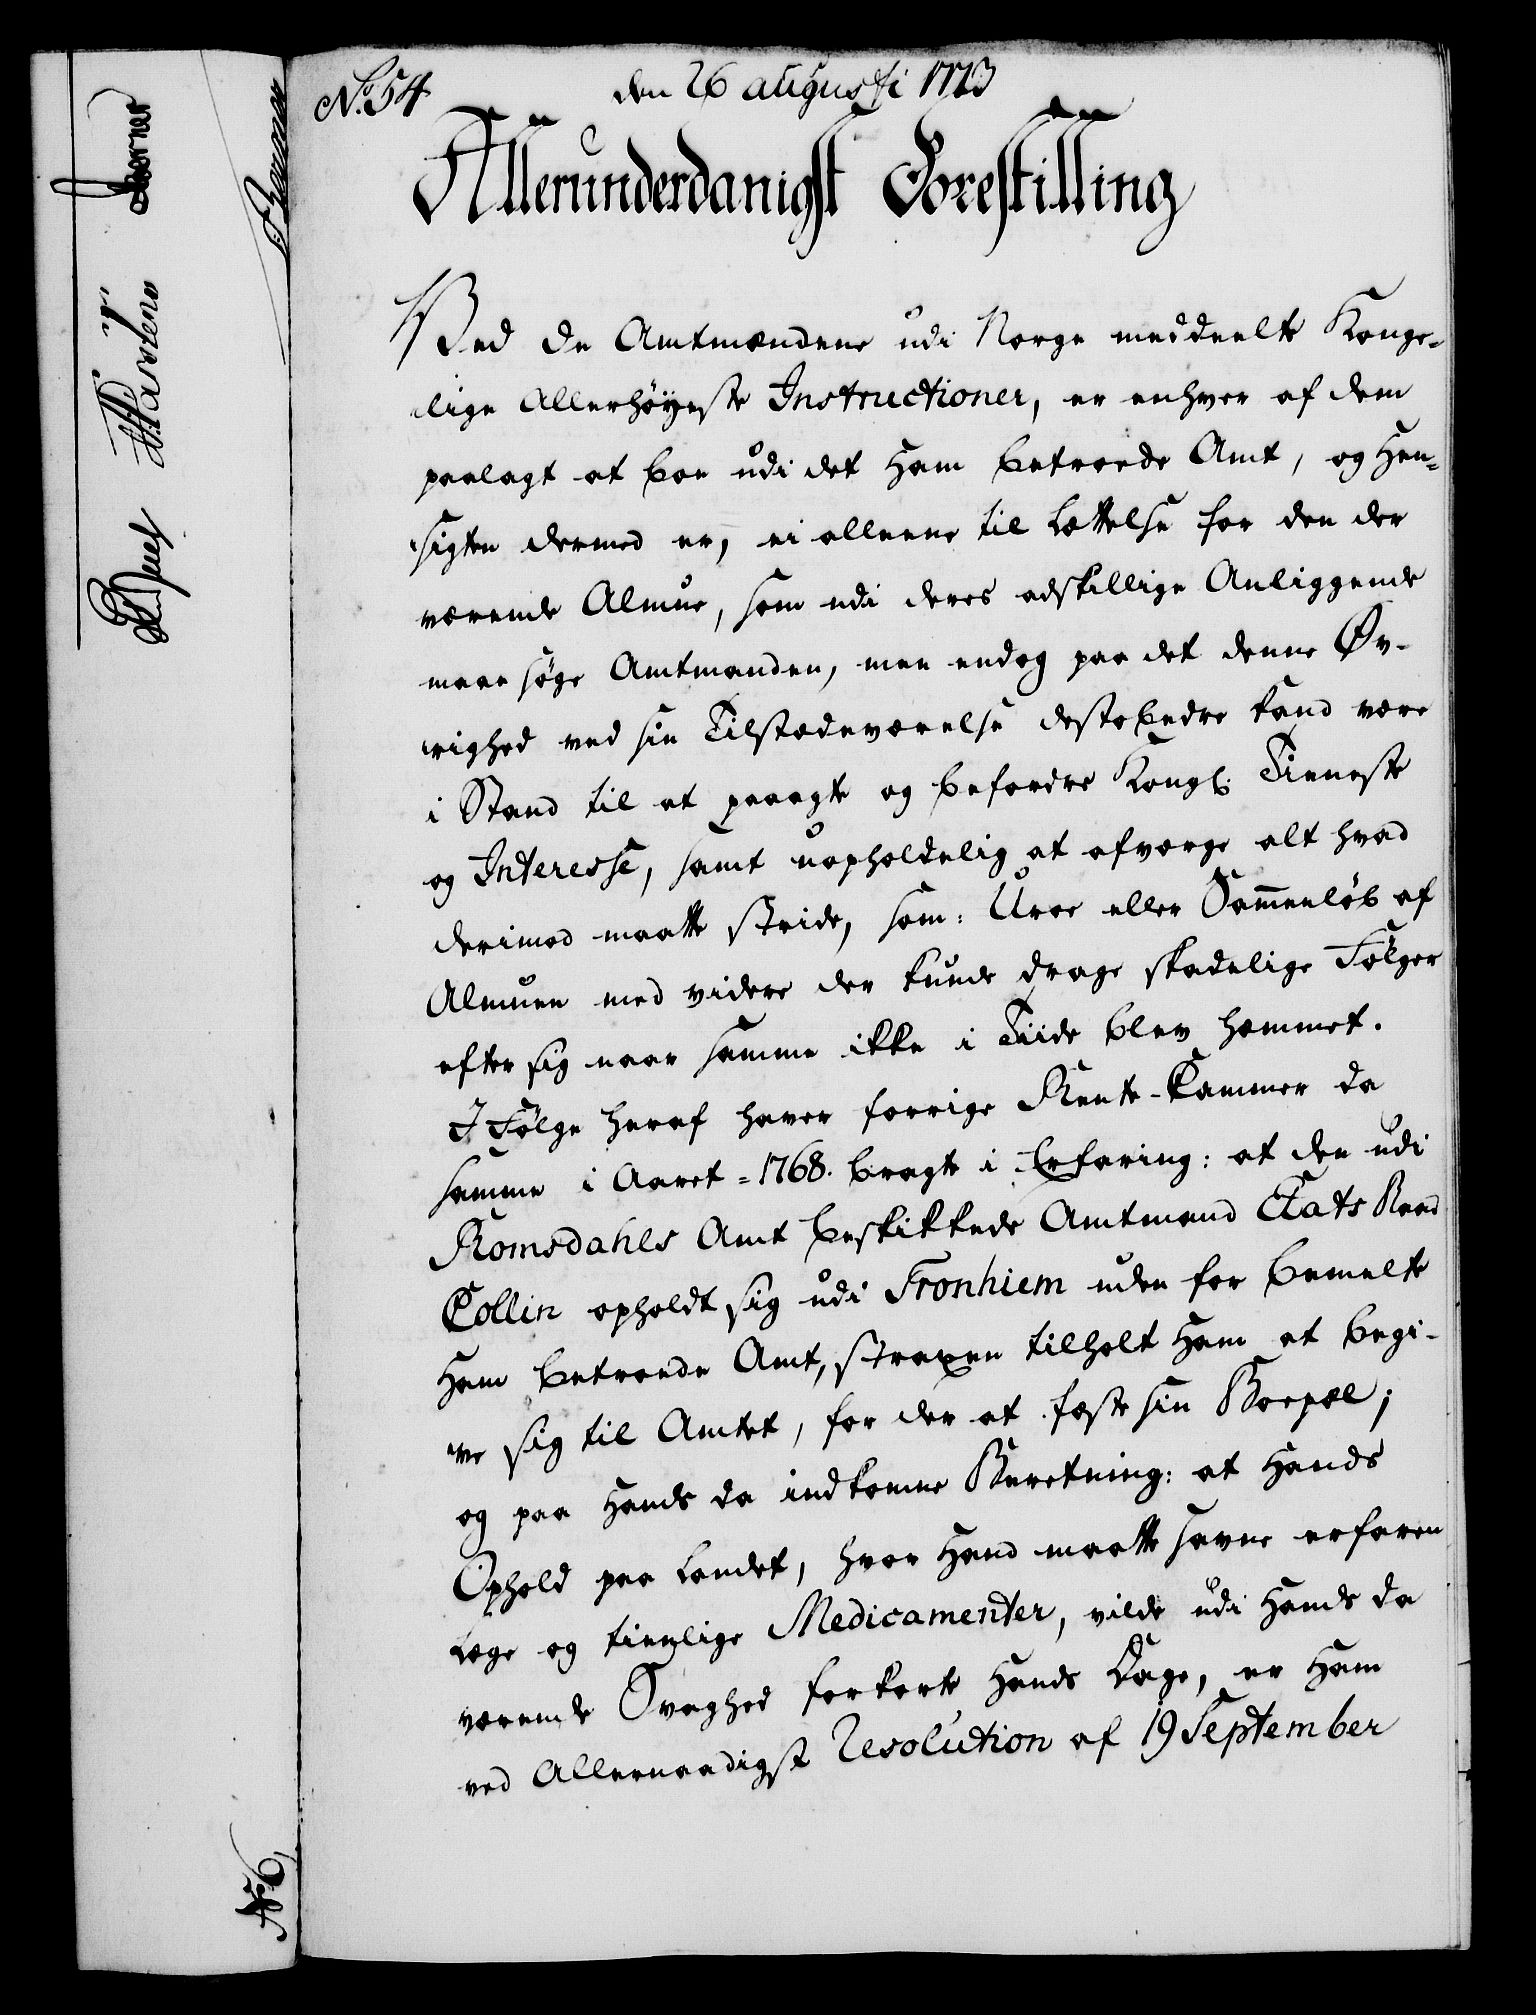 No. 54
den 26 augusti 1773
Allerunderdanigst Forestilling
Ved de Amtmændene udi Norge meddeelte Konge-
lige Allerhöyeste Instructioner, er enhver af dem
paalagt at boe udi det ham betroede Amt, og Hen-
sigten dermed er, ei alleene til Lættelse for den der
værende Almue, som udi deres adskillige Anliggende
maae söge Amtmanden, men endog paa det denne Øv-
righed ved sin Tilstædeværelse destobedre kand være
i Stand til at paaagte og befordre Kongl. Tieneste
og Interesse, samt uopholdelig at afværge alt hvad
derimod maatte stride, som: Uroe eller Sammenløb af
Almuen med videre der kunde drage skadelige Følger
efter sig naar samme ikke i Tiide blev hæmmet.
I Følge heraf haver forrige Rente-Kammer da
samme i Aaret 1768. bragte i Erfaring: at den udi
Romsdahls Amt beskikkede Amtmand Etats Raad
Collin opholdt sig udi Tronhiem uden for bemelte
ham betroede Amt, straxen tilholt ham at begi-
ve sig til Amtet, for der at fæste sin Boepæl;
og paa Hands da indkomne Beretning: at Hands
Ophold paa Landet, hvor Hand maatte savne erfaren
Læge og tienlige Medicamenter, vilde udi Hands da
værende Svaghed forkorte Hands Dage, er Ham
ved Allernaadigst Resolution af 19 September
No. 6